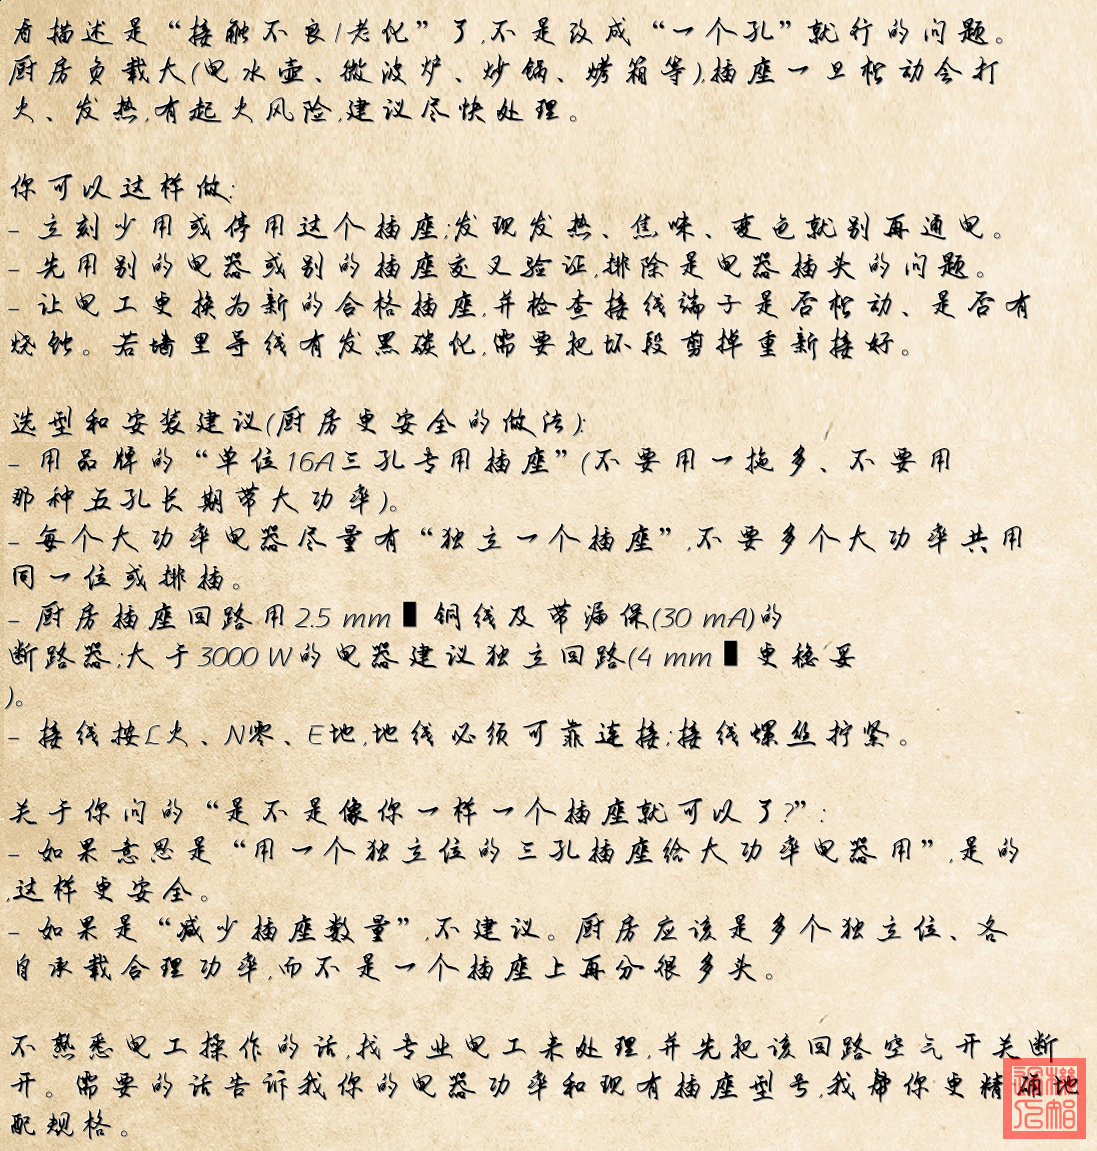 看描述是“接触不良/老化”了,不是改成“一个孔”就行的问题。
厨房负载大(电水壶、微波炉、炒锅、烤箱等),插座一旦松动会打
火、发热,有起火风险,建议尽快处理。
你可以这样做:
- 立刻少用或停用这个插座;发现发热、焦味、变色就别再通电。
- 先用别的电器或别的插座交叉验证,排除是电器插头的问题。
- 让电工更换为新的合格插座,并检查接线端子是否松动、是否有
烧蚀。若墙里导线有发黑碳化,需要把坏段剪掉重新接好。
选型和安装建议(厨房更安全的做法):
- 用品牌的“单位16A三孔专用插座”(不要用一拖多、不要用
那种五孔长期带大功率)。
- 每个大功率电器尽量有“独立一个插座”,不要多个大功率共用
同一位或排插。
- 厨房插座回路用2.5 mm █ 铜线及带漏保(30 mA)的
断路器;大于3000 W的电器建议独立回路(4 mm █ 更稳妥
)。
- 接线按L火、N零、E地,地线必须可靠连接;接线螺丝拧紧。
关于你问的“是不是像你一样一个插座就可以了?”:
- 如果意思是“用一个独立位的三孔插座给大功率电器用”,是的
,这样更安全。
- 如果是“减少插座数量”,不建议。厨房应该是多个独立位、各
自承载合理功率,而不是一个插座上再分很多头。
不熟悉电工操作的话,找专业电工来处理,并先把该回路空气开关断
开。需要的话告诉我你的电器功率和现有插座型号,我帮你更精确地
配规格。